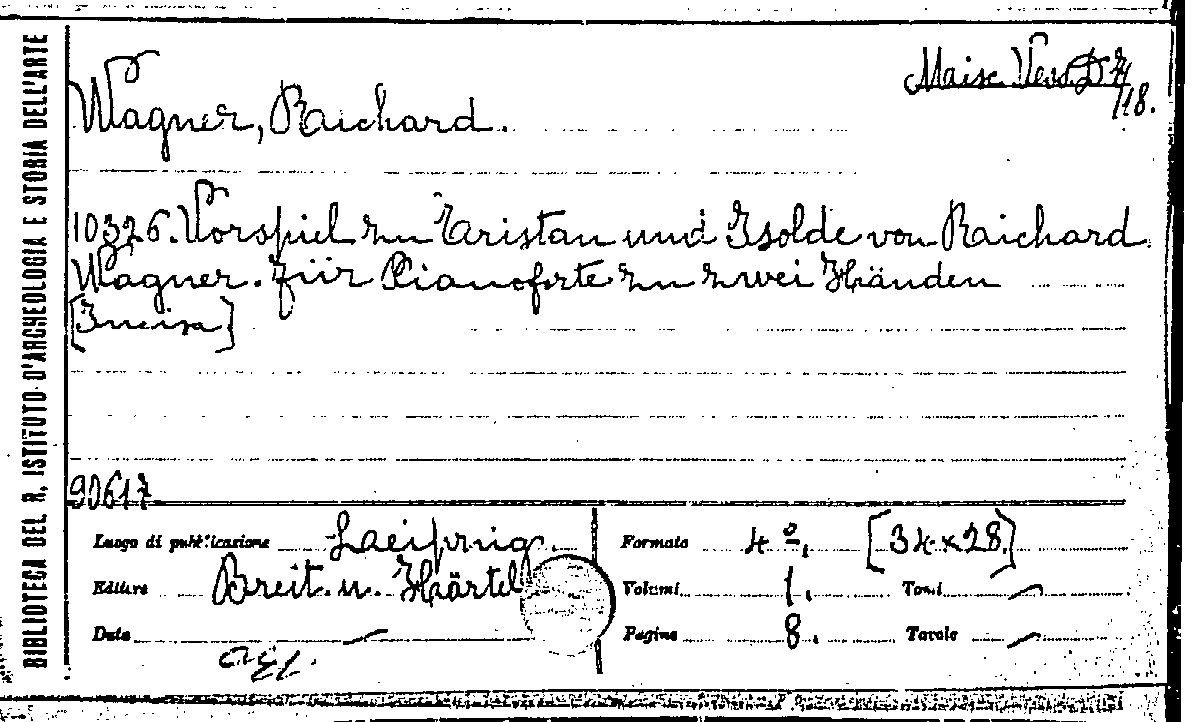 BIBLIOTECA DEL R. ISTITUTO D'ARCHEOLOGIA E STORIA DELL'ARTE
Wagner, Raichard.
/18.
10326. Vorspiel zu Tristan und Isolde von Raichard
Wagner. für Pianoforte zu zwei Händen
90617
Luogo di pubblicazione Laeipzig.
Editore Breit. u. Härtel
Data —
Formato 4º. [34×28]
Volumi 1. Tomi —
Pagine 8. Tavole —